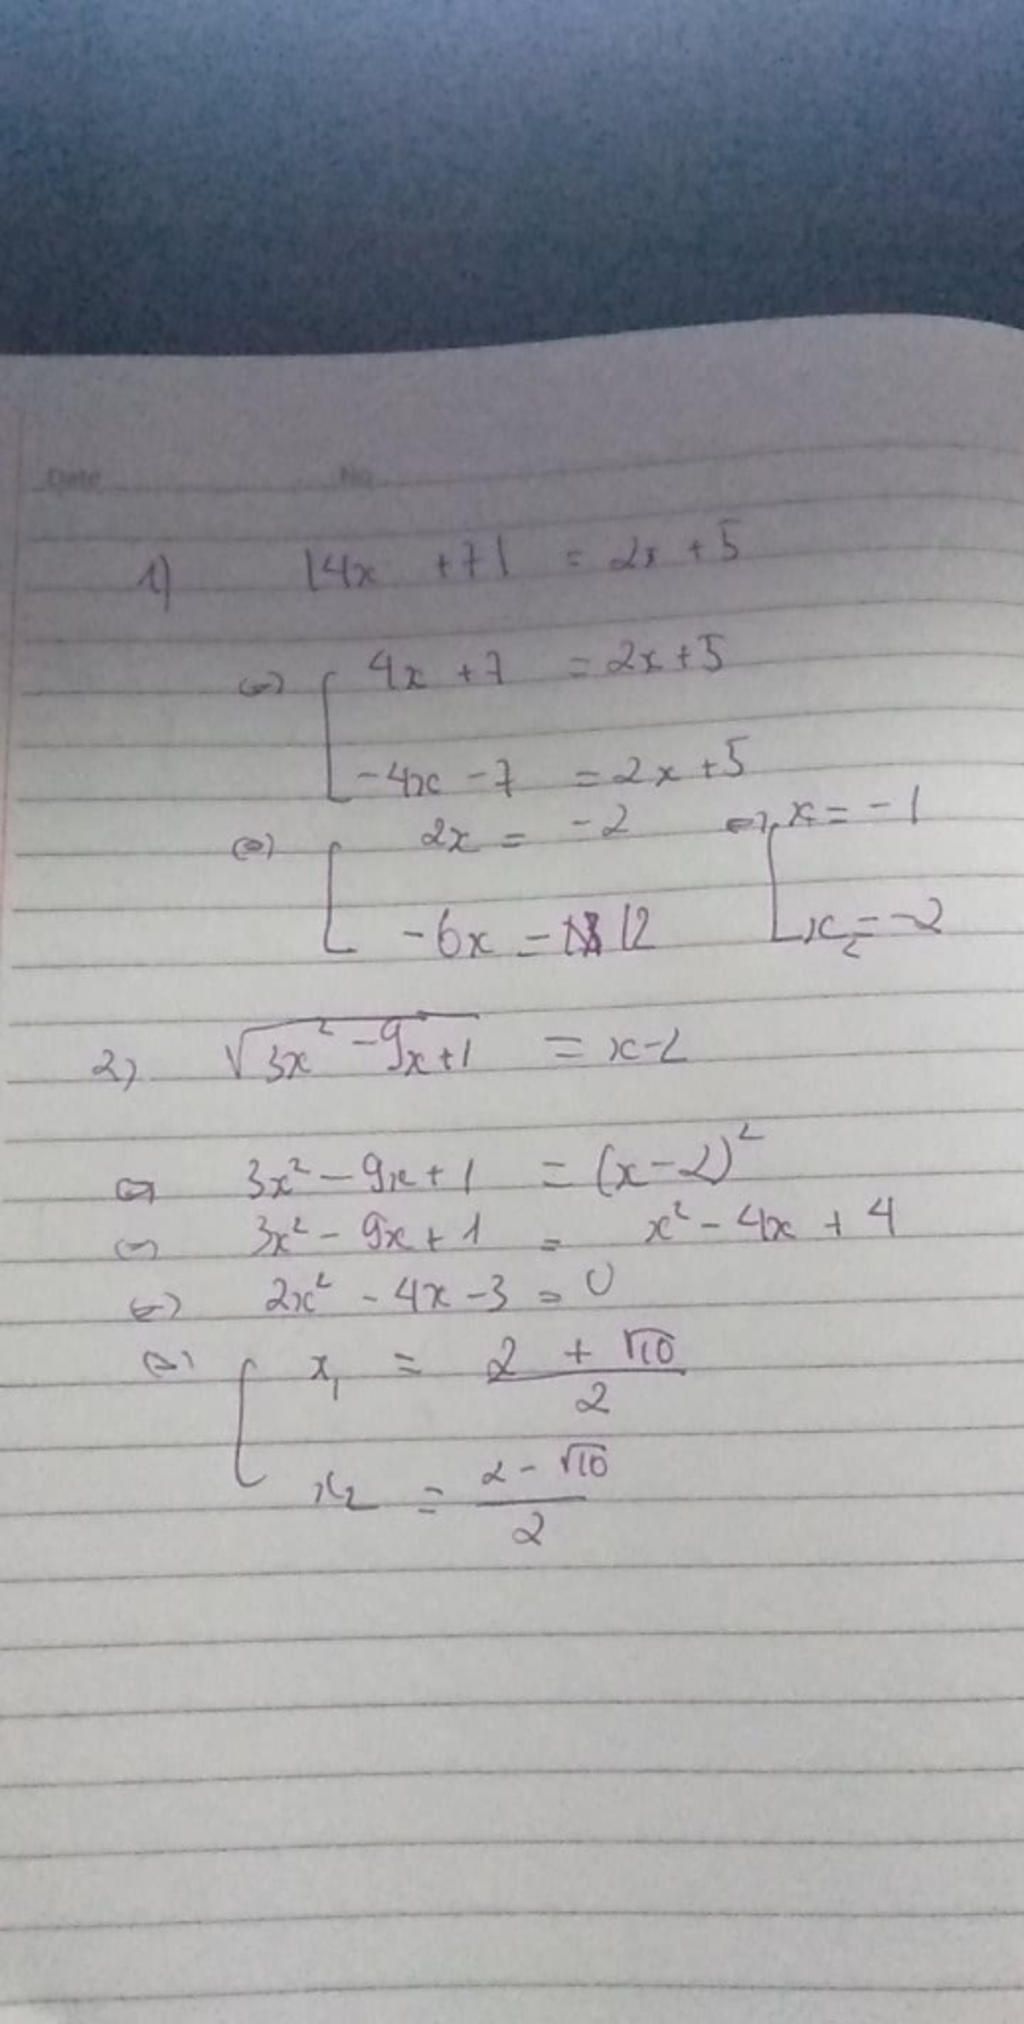 Date No
1) |4x + 7| = 2x + 5
⇔ [ 4x + 7 = 2x + 5
-4x - 7 = 2x + 5
⇔ [ 2x = -2 ⇔ [ x = -1
-6x = 12 x = -2
2) √(3x² - 9x + 1) = x - 2
⇔ 3x² - 9x + 1 = (x - 2)²
⇔ 3x² - 9x + 1 = x² - 4x + 4
⇔ 2x² - 4x - 3 = 0
⇔ [ x₁ = (2 + √10)/2
x₂ = (2 - √10)/2